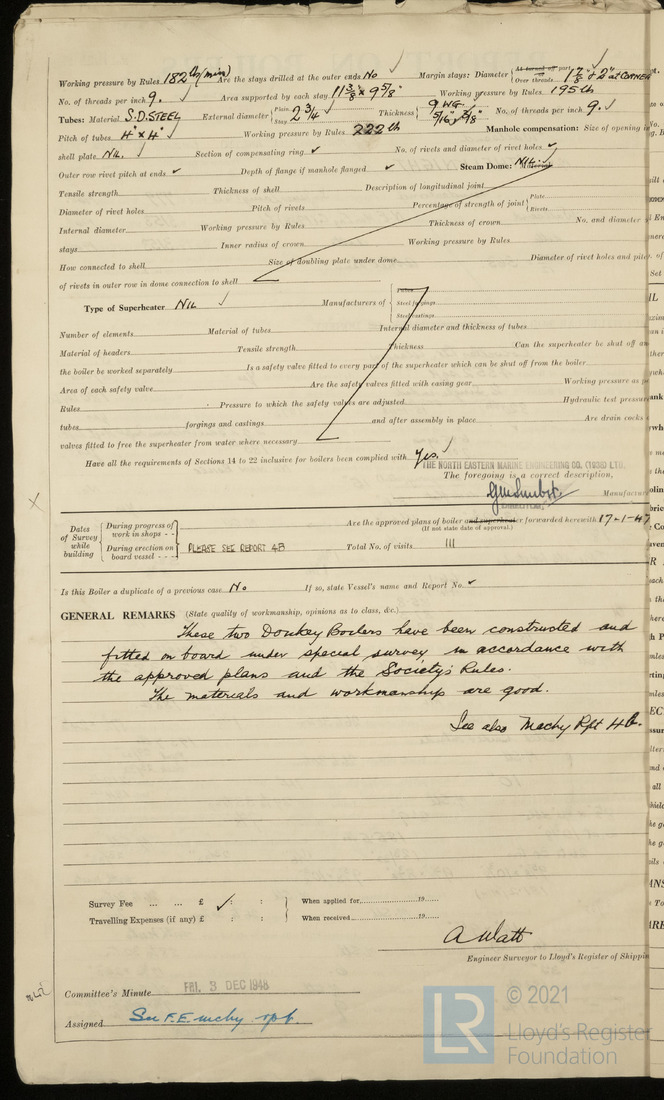 Working pressure by Rules 182 lb (min) Are the stays drilled at the outer ends No Margin stays: Diameter { At turned off part, Over threads 1 7/8" & 2" at CORNER
No. of threads per inch 9. Area supported by each stay 11 3/8" x 9 5/8" Working pressure by Rules 195 lb
Tubes: Material S.D. STEEL External diameter { Plain Stay 2 3/4 Thickness { 9 WG. 5/16" & 3/8" No. of threads per inch 9.
Pitch of tubes 4" x 4" Working pressure by Rules 222 lb Manhole compensation: Size of opening in
shell plate NIL. Section of compensating ring No. of rivets and diameter of rivet holes
Outer row rivet pitch at ends Depth of flange if manhole flanged Steam Dome: NIL. Material
Tensile strength Thickness of shell Description of longitudinal joint
Diameter of rivet holes Pitch of rivets Percentage of strength of joint { Plate Rivets
Internal diameter Working pressure by Rules Thickness of crown No. and diameter
stays Inner radius of crown Working pressure by Rules
How connected to shell Size of doubling plate under dome Diameter of rivet holes and pitch
of rivets in outer row in dome connection to shell
Type of Superheater NIL Manufacturers of { Tubes Steel forgings Steel castings
Number of elements Material of tubes Internal diameter and thickness of tubes
Material of headers Tensile strength Thickness Can the superheater be shut off an
the boiler be worked separately Is a safety valve fitted to every part of the superheater which can be shut off from the boiler
Area of each safety valve Are the safety valves fitted with easing gear Working pressure as p
Rules Pressure to which the safety valves are adjusted Hydraulic test pressure
tubes forgings and castings and after assembly in place Are drain cocks
valves fitted to free the superheater from water where necessary
Have all the requirements of Sections 14 to 22 inclusive for boilers been complied with Yes.
THE NORTH EASTERN MARINE ENGINEERING CO. (1938) LTD.
The foregoing is a correct description,
Manufactur
Dates of Survey while building { During progress of work in shops - - During erection on board vessel - - - PLEASE SEE REPORT 4B
Are the approved plans of boiler and superheater forwarded herewith 17-1-47
(If not state date of approval.)
Total No. of visits 111
Is this Boiler a duplicate of a previous case No If so, state Vessel's name and Report No.
GENERAL REMARKS (State quality of workmanship, opinions as to class, &c.)
These two Donkey Boilers have been constructed and
fitted on board under special survey in accordance with
the approved plans and the Society's Rules.
The materials and workmanship are good.
See also Machy Rpt 4b.
Survey Fee ... ... £ : : When applied for, 19
Travelling Expenses (if any) £ : : When received 19
A Watt
Engineer Surveyor to Lloyd's Register of Shippin
Committee's Minute FRI. 3 DEC 1948
Assigned See F.E. mchy rpt.
© 2021
LR Lloyd's Register
Foundation